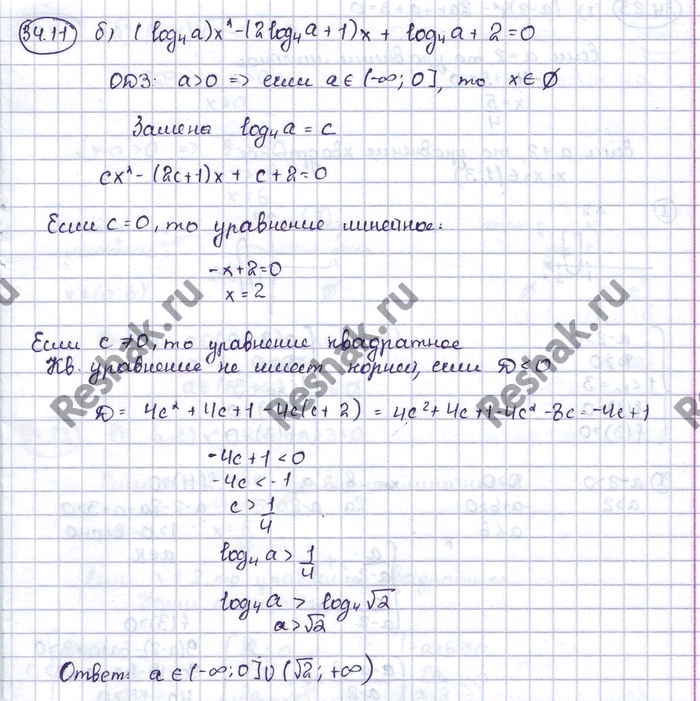 34.11 б) (log₄a)x² - (2log₄a + 1)x + log₄a + 2 = 0
ОДЗ: a > 0 => если a ∈ (-∞; 0], то x ∈ ∅
Замена log₄a = c
cx² - (2c+1)x + c + 2 = 0
Если c = 0, то уравнение линейное:
-x + 2 = 0
x = 2
Если c ≠ 0, то уравнение квадратное
Кв. уравнение не имеет корней, если D < 0
D = 4c² + 4c + 1 - 4c(c + 2) = 4c² + 4c + 1 - 4c² - 8c = -4c + 1
-4c + 1 < 0
-4c < -1
c > 1/4
log₄a > 1/4
log₄a > log₄√2
a > √2
Ответ: a ∈ (-∞; 0] ∪ (√2; +∞)
Reshak.ru
Reshak.ru
Reshak.ru